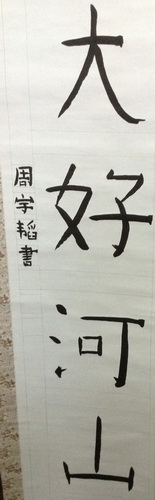 大好河山
周宇韬書